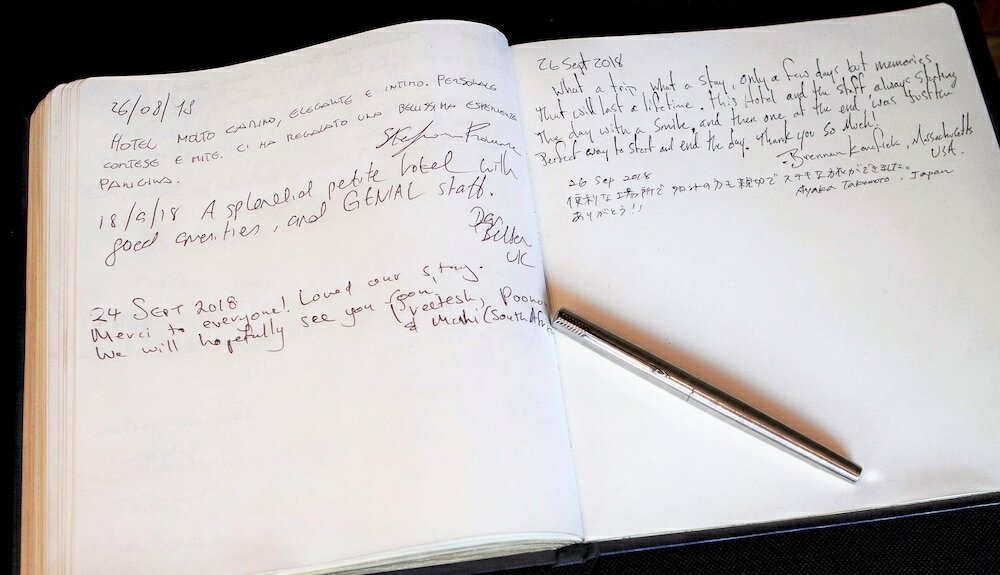 26/08/18
HOTEL MOLTO CARINO, ELEGANTE E INTIMO. PERSONALE
CORTESE E MITE. CI HA REGALATO UNA BELLISSIMA ESPERIENZA
PARIGINA.
18/9/18 A splendid petite hotel with
good amenities, and GENIAL staff.
Dan
UK
24 SEPT 2018
Merci to everyone! Loved our stay.
We will hopefully see you soon,
Preetesh,
& Mahi (South Afri
26 Sept 2018
What a trip, what a stay, only a few days but memories
that will last a lifetime. This Hotel and the staff always starting
the day with a smile, and then one at the end, was just the
Perfect way to start and end the day. Thank you so Much!
Brennan, Massachusetts
USA.
26 Sep 2018
便利な場所で フロントの方も親切で ステキな旅ができました。
ありがとう!!
Ayaka Takemoto. Japan